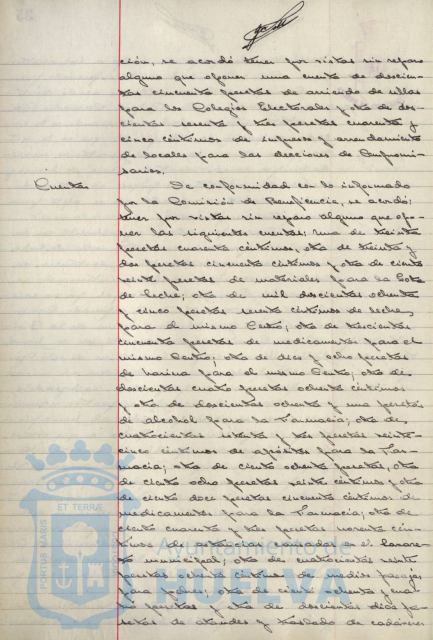 ción, se acordó tener por vistas sin reparo
alguno que oponer una cuenta de doscien-
tas cincuenta pesetas de arriendo de sillas
para los Colegios Electorales y otra de dos-
cientas sesenta y tres pesetas cuarenta y
cinco céntimos de impresos y arrendamiento
de locales para las elecciones de Compromi-
sarios.
Cuentas
De conformidad con lo informado
por la Comisión de Beneficencia, se acordó:
tener por vistas sin reparo alguno que opo-
ner las siguientes cuentas: una de treinta
pesetas cuarenta céntimos, otra de treinta y
dos pesetas cincuenta céntimos y otra de ciento
veinte pesetas de materiales para la Gota
de leche; otra de mil doscientas ochenta
y cinco pesetas sesenta céntimos de leche
para el mismo Centro; otra de trescientas
cincuenta pesetas de medicamentos para el
mismo Centro; otra de diez y ocho pesetas
de harina para el mismo Centro; otra de
doscientas cuatro pesetas ochenta céntimos
y otra de doscientas ochenta y una pesetas
de alcohol para la Farmacia; otra de
cuatrocientas setenta y tres pesetas veinte-
cinco céntimos de apósitos para la Far-
macia; otra de ciento ochenta pesetas, otra
de ciento ocho pesetas veinte céntimos y otra
de ciento doce pesetas cincuenta céntimos de
medicamentos para la Farmacia; otra de
ciento cuarenta y tres pesetas noventa cén-
timos de estancias causadas en el
municipal; otra de cuatrocientas veinte
pesetas ochenta céntimos de medios pasajes
para pobres; otra de ciento ochenta y cua-
tro pesetas y otra de doscientas diez pe-
setas de ataudes y traslado de cadáveres
PORTUS MARIS
ET TERRÆ
Ayuntamiento de
HUELVA